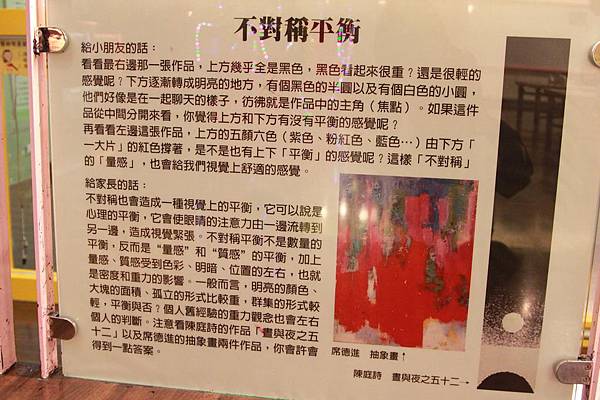 不對稱平衡
給小朋友的話：
看看最右邊那一張作品，上方幾乎全是黑色，黑色看起來很重？還是很輕的
感覺呢？下方逐漸轉成明亮的地方，有個黑色的半圓以及有個白色的小圓，
他們好像是在一起聊天的樣子，彷彿就是作品中的主角（焦點）。如果這件
作品從中間分開來看，你覺得上方和下方有沒有平衡的感覺呢？
再看看左邊這張作品，上方的五顏六色（紫色、粉紅色、藍色…）由下方「
一大片」的紅色撐著，是不是也有上下「平衡」的感覺呢？這樣「不對稱」
的「量感」，也會給我們視覺上舒適的感覺。
給家長的話：
不對稱也會造成一種視覺上的平衡，它可以說是
心理的平衡，它會使眼睛的注意力由一邊流轉到
另一邊，造成視覺緊張。不對稱平衡不是數量的
平衡，反而是“量感”和“質感”的平衡，加上
量感、質感受到色彩、明暗、位置的左右，也就
是密度和重力的影響。一般而言，明亮的顏色、
大塊的面積、孤立的形式比較重，群集的形式較
輕，平衡與否？個人舊經驗的重力觀念也會左右
個人的判斷。注意看陳庭詩的作品「晝與夜之五
十二」以及席德進的抽象畫兩件作品，你會許會
得到一點答案。
席德進　抽象畫↑
陳庭詩　晝與夜之五十二→